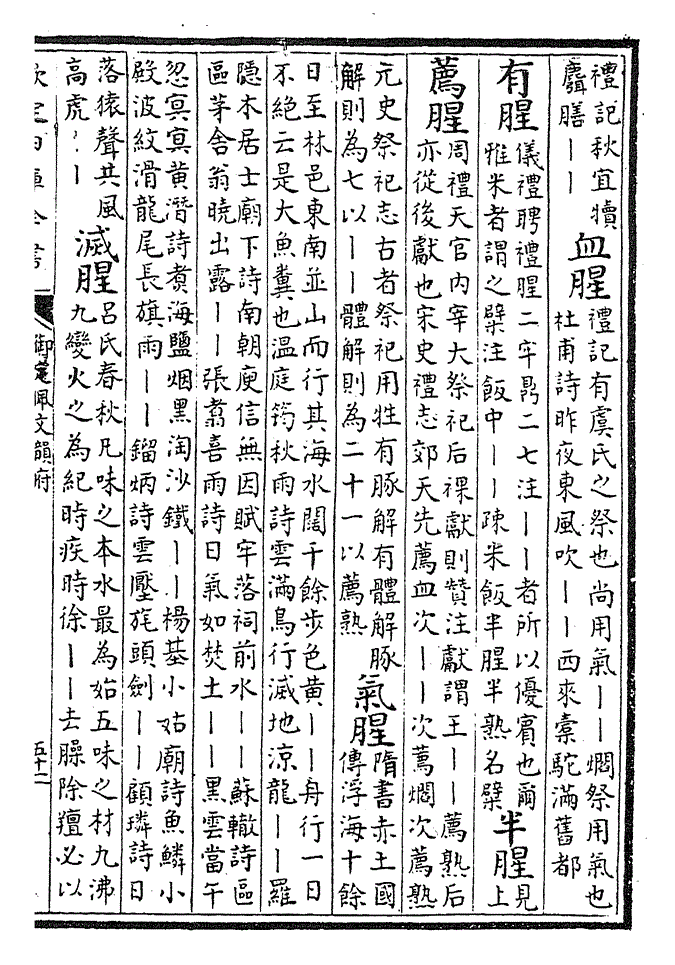 禮記秋宜犢
麛膳丨丨
血腥
禮記有虞氏之祭也尚用氣丨丨爓祭用氣也
杜甫詩昨夜東風吹丨丨西來橐駝滿舊都
有腥
儀禮聘禮腥二牢鼎二七注丨丨者所以優賓也爾
雅米者謂之檗注飯中丨丨疎米飯半腥半熟名檗
半腥
見
上
薦腥
周禮天官內宰大祭祀后祼獻則贊注獻謂王丨丨薦熟后
亦從後獻也宋史禮志郊天先薦血次丨丨次薦爓次薦熟
元史祭祀志古者祭祀用牲有豚解有體解豚
解則為七以丨丨體解則為二十一以薦熟
氣腥
隋書赤土國
傳浮海十餘
日至林邑東南並山而行其海水闊千餘步色黃丨丨舟行一日
不絕云是大魚糞也溫庭筠秋雨詩雲滿鳥行滅地涼龍丨丨羅
隱木居士廟下詩南朝庾信無因賦牢落祠前水丨丨蘇轍詩區
區茅舍翁曉出露丨丨張翥喜雨詩日氣如焚土丨丨黑雲當午
忽冥冥黃潛詩煑海鹽烟黑淘沙鐵丨丨楊基小姑廟詩魚鱗小
殿波紋滑龍尾長旗雨丨丨鎦炳詩雲壓旄頭劍丨丨顧璘詩日
落猿聲共風
高虎丨丨
滅腥
呂氏春秋凡味之本水最為始五味之材九沸
九變火之為紀時疾時徐丨丨去臊除羶必以
欽定四庫全書
御定佩文韻府
五十二